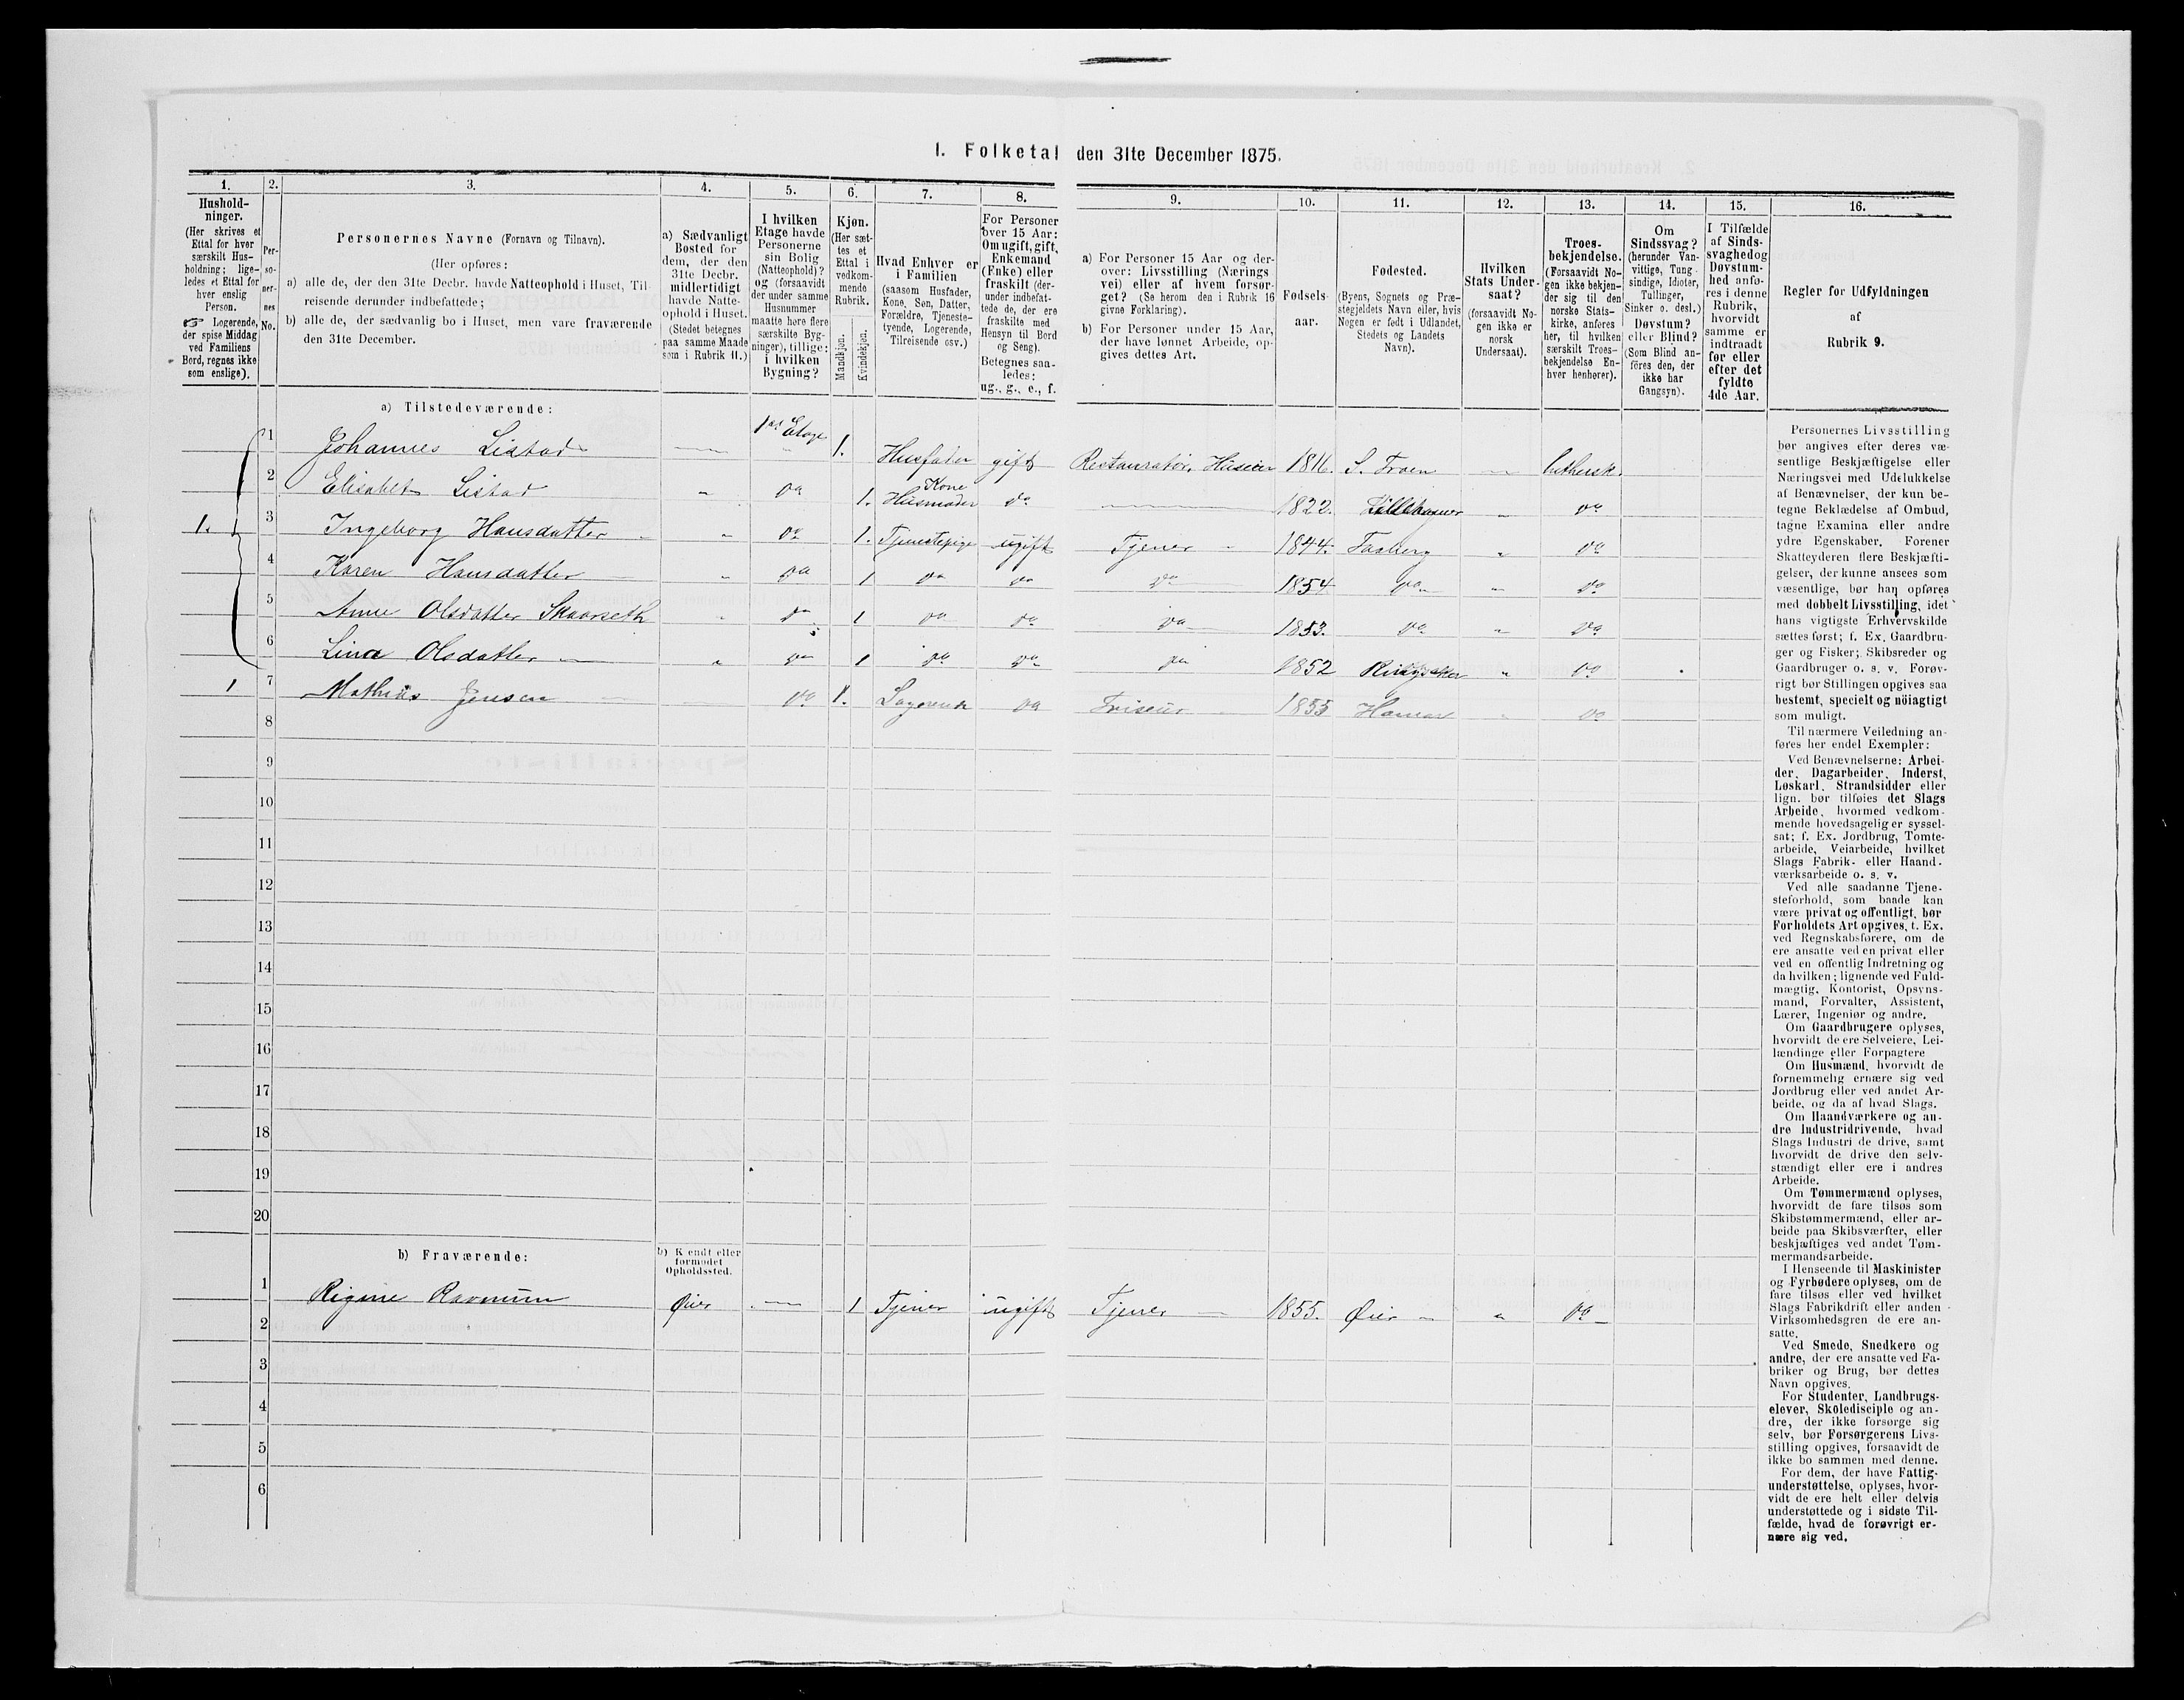 1. Folketal den 31te December 1875.
1. 2. 3. 4. 5. 6. 7. 8. 9. 10. 11. 12. 13. 14. 15. 16.
Hushold-
ninger.
(Her skrives et
Ettal for hver
særskilt Hus-
holdning; lige-
ledes et Ettal for
hver enslig
Person.
☞ Logerende,
der spise Middag
ved Familiens
Bord, regnes ikke
som enslige).
Per-
so-
ner-
nes
No.
Personernes Navne (Fornavn og Tilnavn).
(Her opføres:
a) alle de, der den 31te Decbr. havde Natteophold i Huset, Til-
reisende derunder indbefattede;
b) alle de, der sædvanlig bo i Huset, men vare fraværende
den 31te December.
a) Sædvanligt
Bosted for
dem, der den
31te Decbr.
midlertidigt
havde Natte-
ophold i Huset.
(Stedet betegnes
paa samme Maade
som i Rubrik 11.)
I hvilken
Etage havde
Personerne
sin Bolig
(Natteophold)?
og (forsaavidt
der under samme
Husnummer
maatte høre flere
særskilte Byg-
ninger), tillige:
i hvilken
Bygning?
Kjøn.
(Her sæt-
tes et
Ettal i
vedkom-
mende
Rubrik.
Mandkjøn.
Kvindekjøn.
Hvad Enhver er
i Familien
(saasom Husfader,
Kone, Søn, Datter,
Forældre, Tjeneste-
tyende, Logerende,
Tilreisende osv.)
For Personer
over 15 Aar:
Om ugift, gift,
Enkemand
(Enke) eller
fraskilt (der-
under indbefat-
tede de, der ere
fraskilte med
Hensyn til Bord
og Seng).
Betegnes saa-
ledes:
ug., g., e., f.
a) For Personer 15 Aar og der-
over: Livsstilling (Nærings
vei) eller af hvem forsør-
get? (Se herom den i Rubrik 16
givne Forklaring).
b) For Personer under 15 Aar,
der have lønnet Arbeide, op-
gives dettes Art.
Fødsels-
aar.
Fødested.
(Byens, Sognets og Præ-
stegjeldets Navn eller, hvis
Nogen er født i Udlandet,
Stedets og Landets
Navn).
Hvilken
Stats Under-
saat?
(forsaavidt No-
gen ikke er
norsk
Undersaat).
Troes-
bekjendelse.
(Forsaavidt No-
gen ikke bekjen-
der sig til den
norske Stats-
kirke, anføres
her, til hvilken
særskilt Troes-
bekjendelse En-
hver henhører).
Om
Sindssvag?
(herunder Van-
vittige, Tung-
sindige, Idioter,
Tullinger,
Sinker o. desl.)
Døvstum?
eller Blind?
(Som Blind an-
føres den, der
ikke har
Gangsyn).
I Tilfælde
af Sinds-
svaghed og
Døvstum-
hed anfø-
res i denne
Rubrik,
hvorvidt
samme er
indtraadt
før eller
efter det
fyldte
4de Aar.
Regler for Udfyldningen
af
Rubrik 9.
a) Tilstedeværende:
1 Johannes Listad 1ste Etage 1. Husfader gift Restauratør, Huseier 1816. S. Froen Luthersk.
2 Elisabet Listad " do 1. Husmoder Kone do 1822. Lillehamer " do
1. 3 Ingeborg Hansdatter " do 1. Tjenestepige ugift Tjener 1844. Faaberg " do
4 Karen Hansdatter " do 1 do do do 1854 do " do
5 Anne Olsdatter Skaarseth " do 1 do do do 1853. do " do
6 Lina Olsdatter " do 1 do do do 1852 Ringsaker " do
1 7 Mathias Jensen do 1. Logerende do Friseur 1855 Hamar " do
8
9
10
11
12
13
14
15
16
17
18
19
20
b) Fraværende:
b) Kendt eller
formodet
Opholdssted.
1 Rigine Øier 1 Tjener ugift Tjener 1855. Øier " do
2
3
4
5
6
Personernes Livsstilling
bør angives efter deres væ-
sentlige Beskjæftigelse eller
Næringsvei med Udelukkelse
af Benævnelser, der kun be-
tegne Beklædelse af Ombud,
tagne Examina eller andre
ydre Egenskaber. Forener
Skatteyderen flere Beskjæfti-
gelser, der kunne ansees som
væsentlige, bør han opføres
med dobbelt Livsstilling, idet
hans vigtigste Erhvervskilde
sættes først; f. Ex. Gaardbru-
ger og Fisker; Skibsreder og
Gaardbruger o. s. v. Forøv-
rigt bør Stillingen opgives saa
bestemt, specielt og nöiagtigt
som muligt.
Til nærmere Veiledning an-
føres her endel Exempler:
Ved Benævnelserne: Arbei-
der, Dagarbeider, Inderst,
Løskarl, Strandsidder eller
lign. bør tilføies det Slags
Arbeide, hvormed vedkom-
mende hovedsagelig er syssel-
sat; f. Ex. Jordbrug, Tomte-
arbeide, Veiarbeide, hvilket
Slags Fabrik- eller Haand-
værksarbeide o. s. v.
Ved alle saadanne Tjene-
steforhold, som baade kan
være privat og offentligt, bør
Forholdets Art opgives, f. Ex.
ved Regnskabsførere, om de
ere ansatte ved en privat eller
ved en offentlig Indretning og
da hvilken; lignende ved Fuld-
mægtig, Kontorist, Opsyns-
mand, Forvalter, Assistent,
Lærer, Ingeniør og andre.
Om Gaardbrugere oplyses,
hvorvidt de ere Selveiere, Lei-
lændinge eller Forpagtere
Om Husmænd, hvorvidt de
fornemmelig ernære sig ved
Jordbrug eller ved andet Ar-
beide, og da af hvad Slags.
Om Haandværkere og an-
dre Industridrivende, hvad
Slags Industri de drive, samt
hvorvidt de drive den selv-
stændigt eller ere i andres
Arbeide.
Om Tømmermænd oplyses,
hvorvidt de fare tilsøs som
Skibstømmermænd, eller ar-
beide paa Skibsværfter, eller
beskjæftiges ved andet Tøm-
mermandsarbeide.
I Henseende til Maskinister
og Fyrbødere oplyses, om de
fare tilsøs eller ved hvilket
Slags Fabrikdrift eller anden
Virksomhedsgren de ere an-
satte.
Ved Smede, Snedkere og
andre, der ere ansatte ved Fa-
briker og Brug, bør dettes
Navn opgives.
For Studenter, Landbrugs-
elever, Skoledisciple og an-
dre, der ikke forsørge sig
selv, bør Forsørgerens Livs-
stilling opgives, forsaavidt de
ikke bo sammen med denne.
For dem, der have Fattig-
understøttelse, oplyses, hvor-
vidt de ere helt eller delvis
understøttede og i sidste Til-
fælde, hvad de forøvrigt er-
nære sig ved.